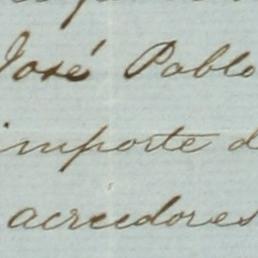 José Pablo
importe d
acreedores